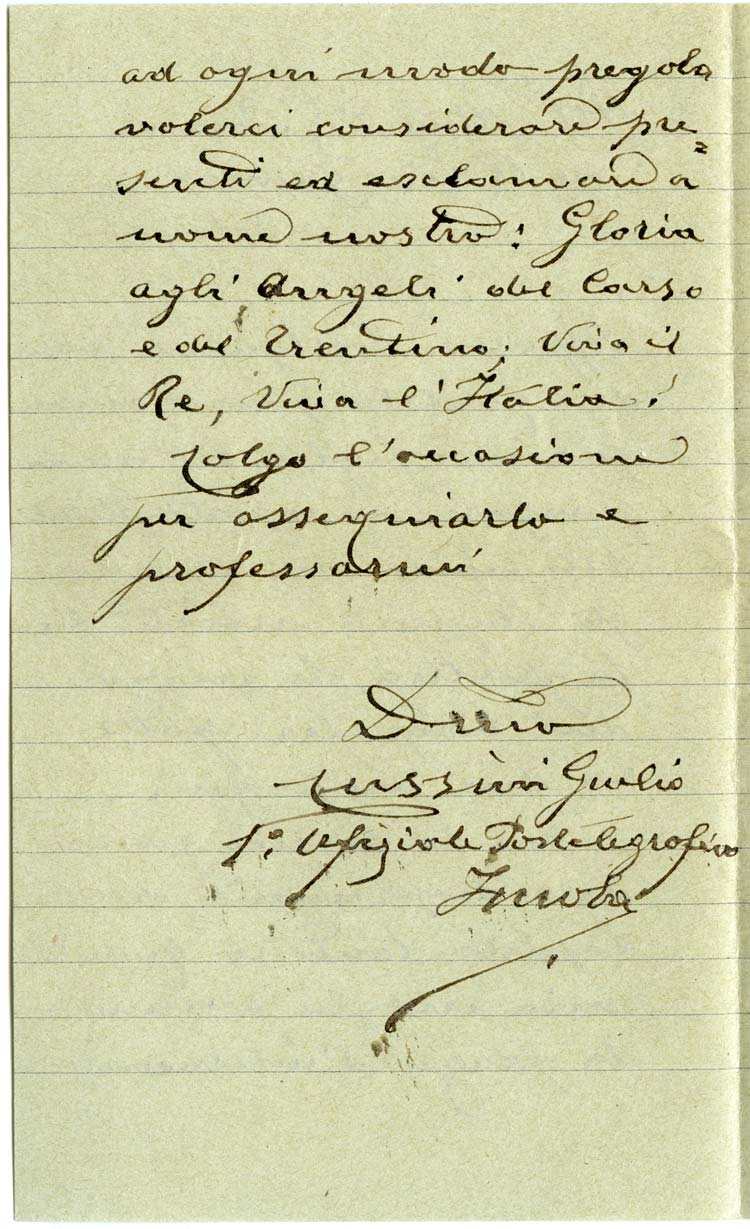 ad ogni modo pregola
volerci considerare pre=
senti ed esclamare a
nome nostro: Gloria
agli Angeli del Carso
e del Trentino; Viva il
Re, Viva l'Italia!
Colgo l'occasione
per ossequiarlo e
professarmi
Dmo
Giulio
1º Ufiziale Postelegrafico
Imola